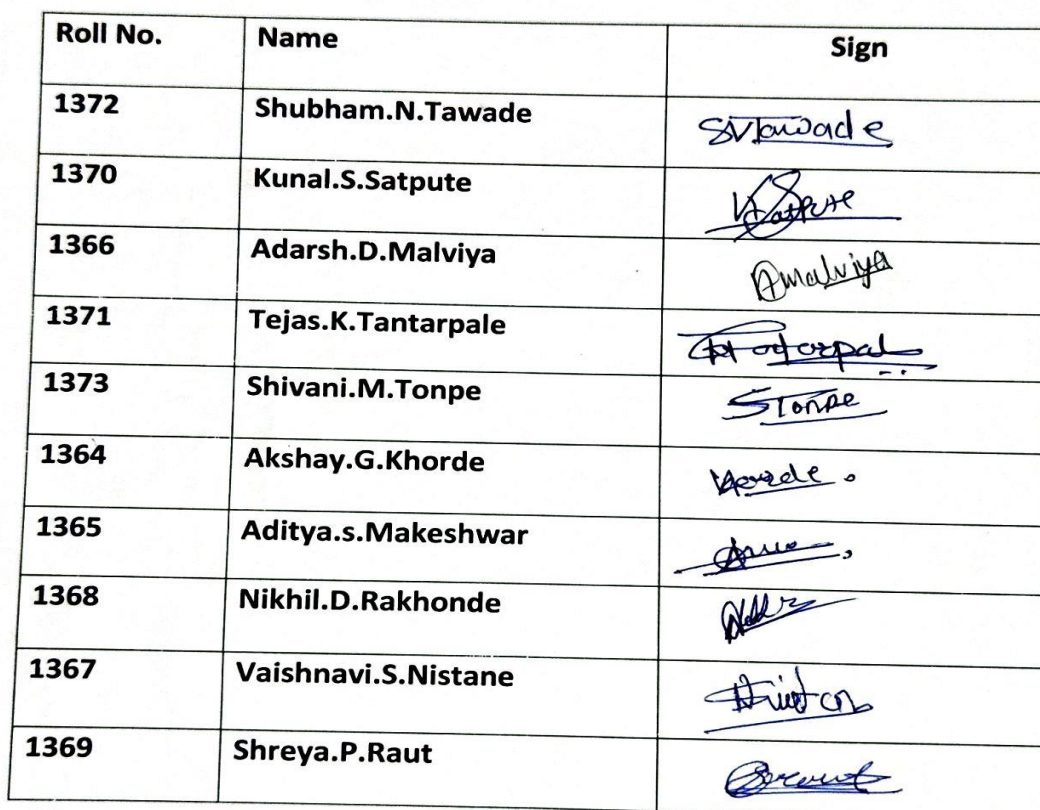 Roll No. Name Sign
1372 Shubham.N.Tawade SNTawade
1370 Kunal.S.Satpute
1366 Adarsh.D.Malviya Amalviya
1371 Tejas.K.Tantarpale
1373 Shivani.M.Tonpe STonpe
1364 Akshay.G.Khorde
1365 Aditya.s.Makeshwar
1368 Nikhil.D.Rakhonde
1367 Vaishnavi.S.Nistane
1369 Shreya.P.Raut